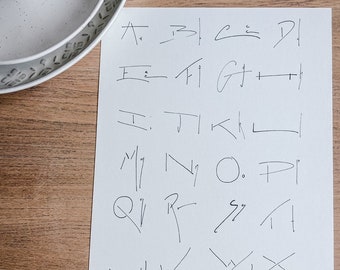 A. B C D
E F G H
I. J K L
M N O. P
Q R S T
U V W X